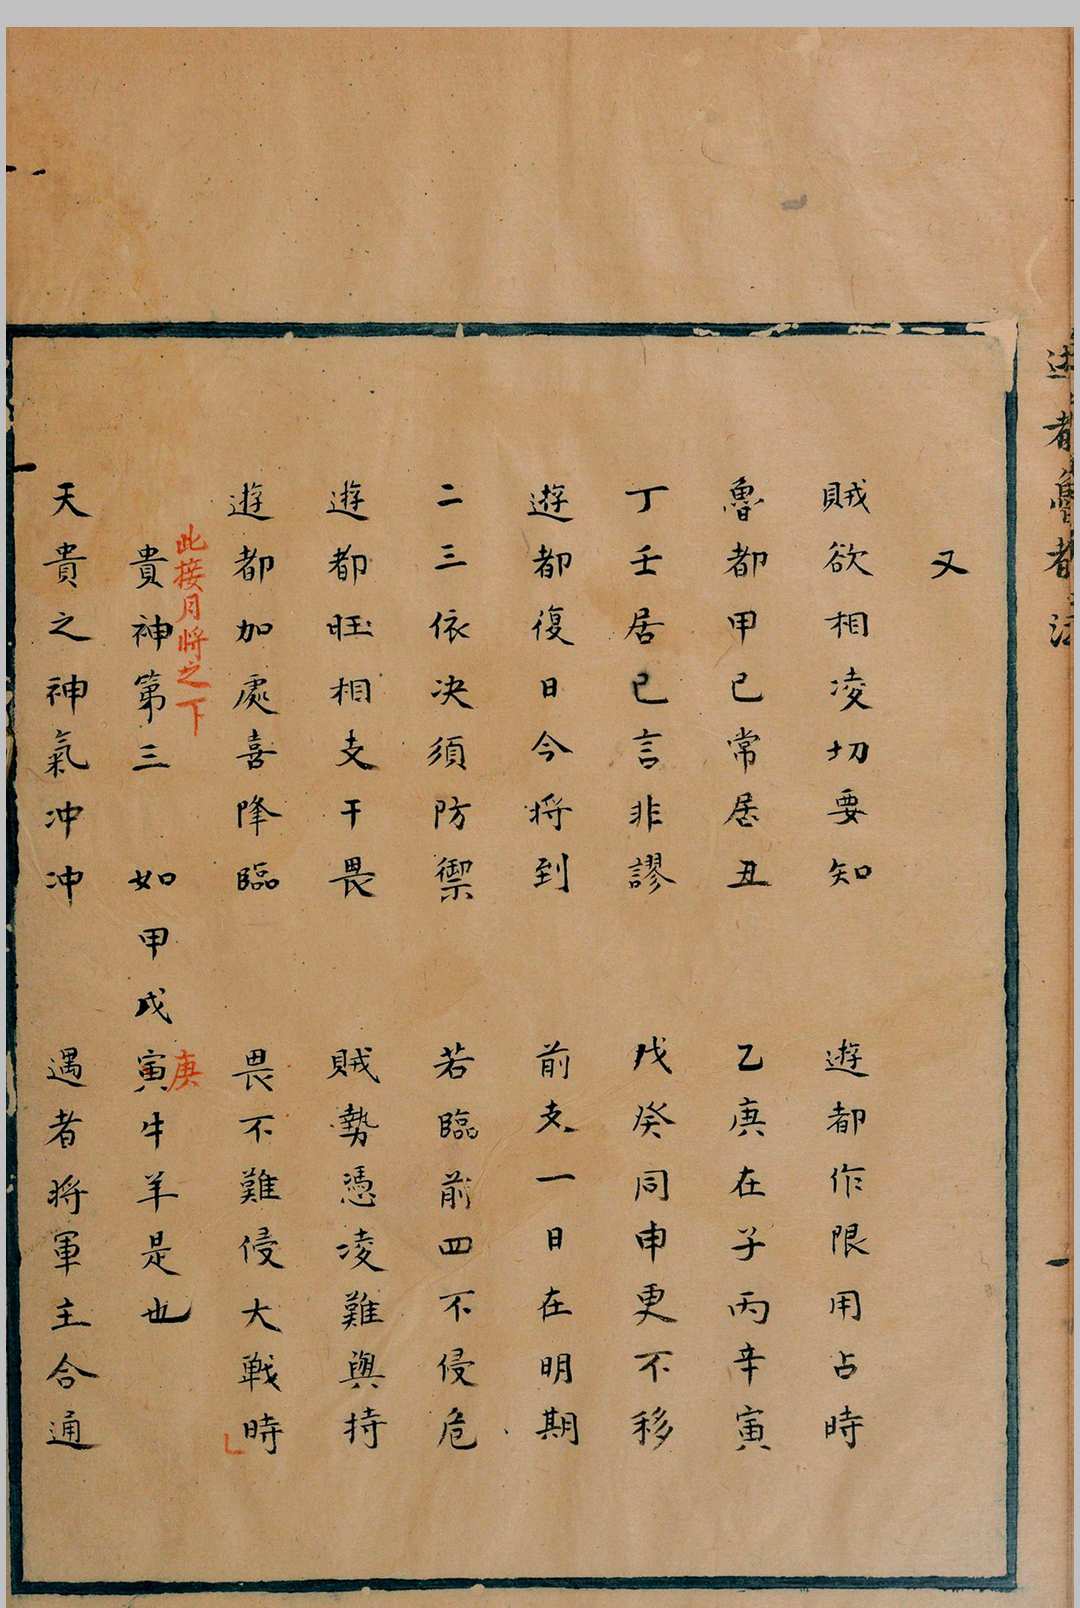 遊都魯都法
又
賊欲相凌切要知 遊都作限用占時
魯都甲己常居丑 乙庚在子丙辛寅
丁壬居巳言非謬 戊癸同申更不移
遊都復日今将到 前支一日在明期
二三依决須防禦 若臨前四不侵危
遊都旺相支干畏 賊勢憑凌難與持
遊都加處喜降臨 畏不難侵大戦時
此接月将之下
貴神第三 如甲戊寅牛羊是也
庚
天貴之神氣冲冲 遇者将軍主合通